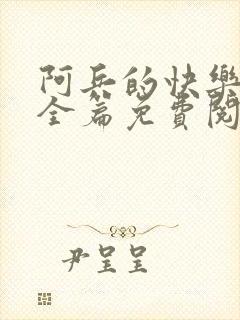 阿兵的快樂
全篇免費閱
尹呈呈